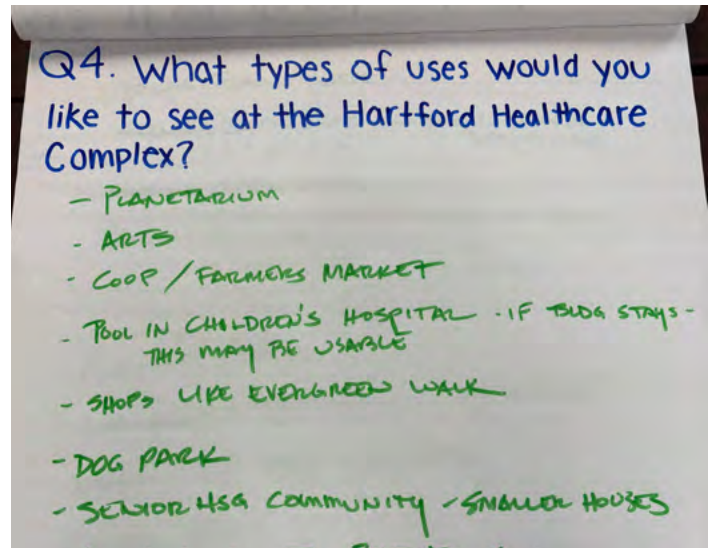 Q4. What types of uses would you
like to see at the Hartford Healthcare
Complex?
- PLANETARIUM
- ARTS
- COOP / FARMERS MARKET
- POOL IN CHILDREN'S HOSPITAL - IF BLDG STAYS -
THIS MAY BE USABLE
- SHOPS LIKE EVERGREEN WALK
- DOG PARK
- SENIOR HSG COMMUNITY - SMALLER HOUSES